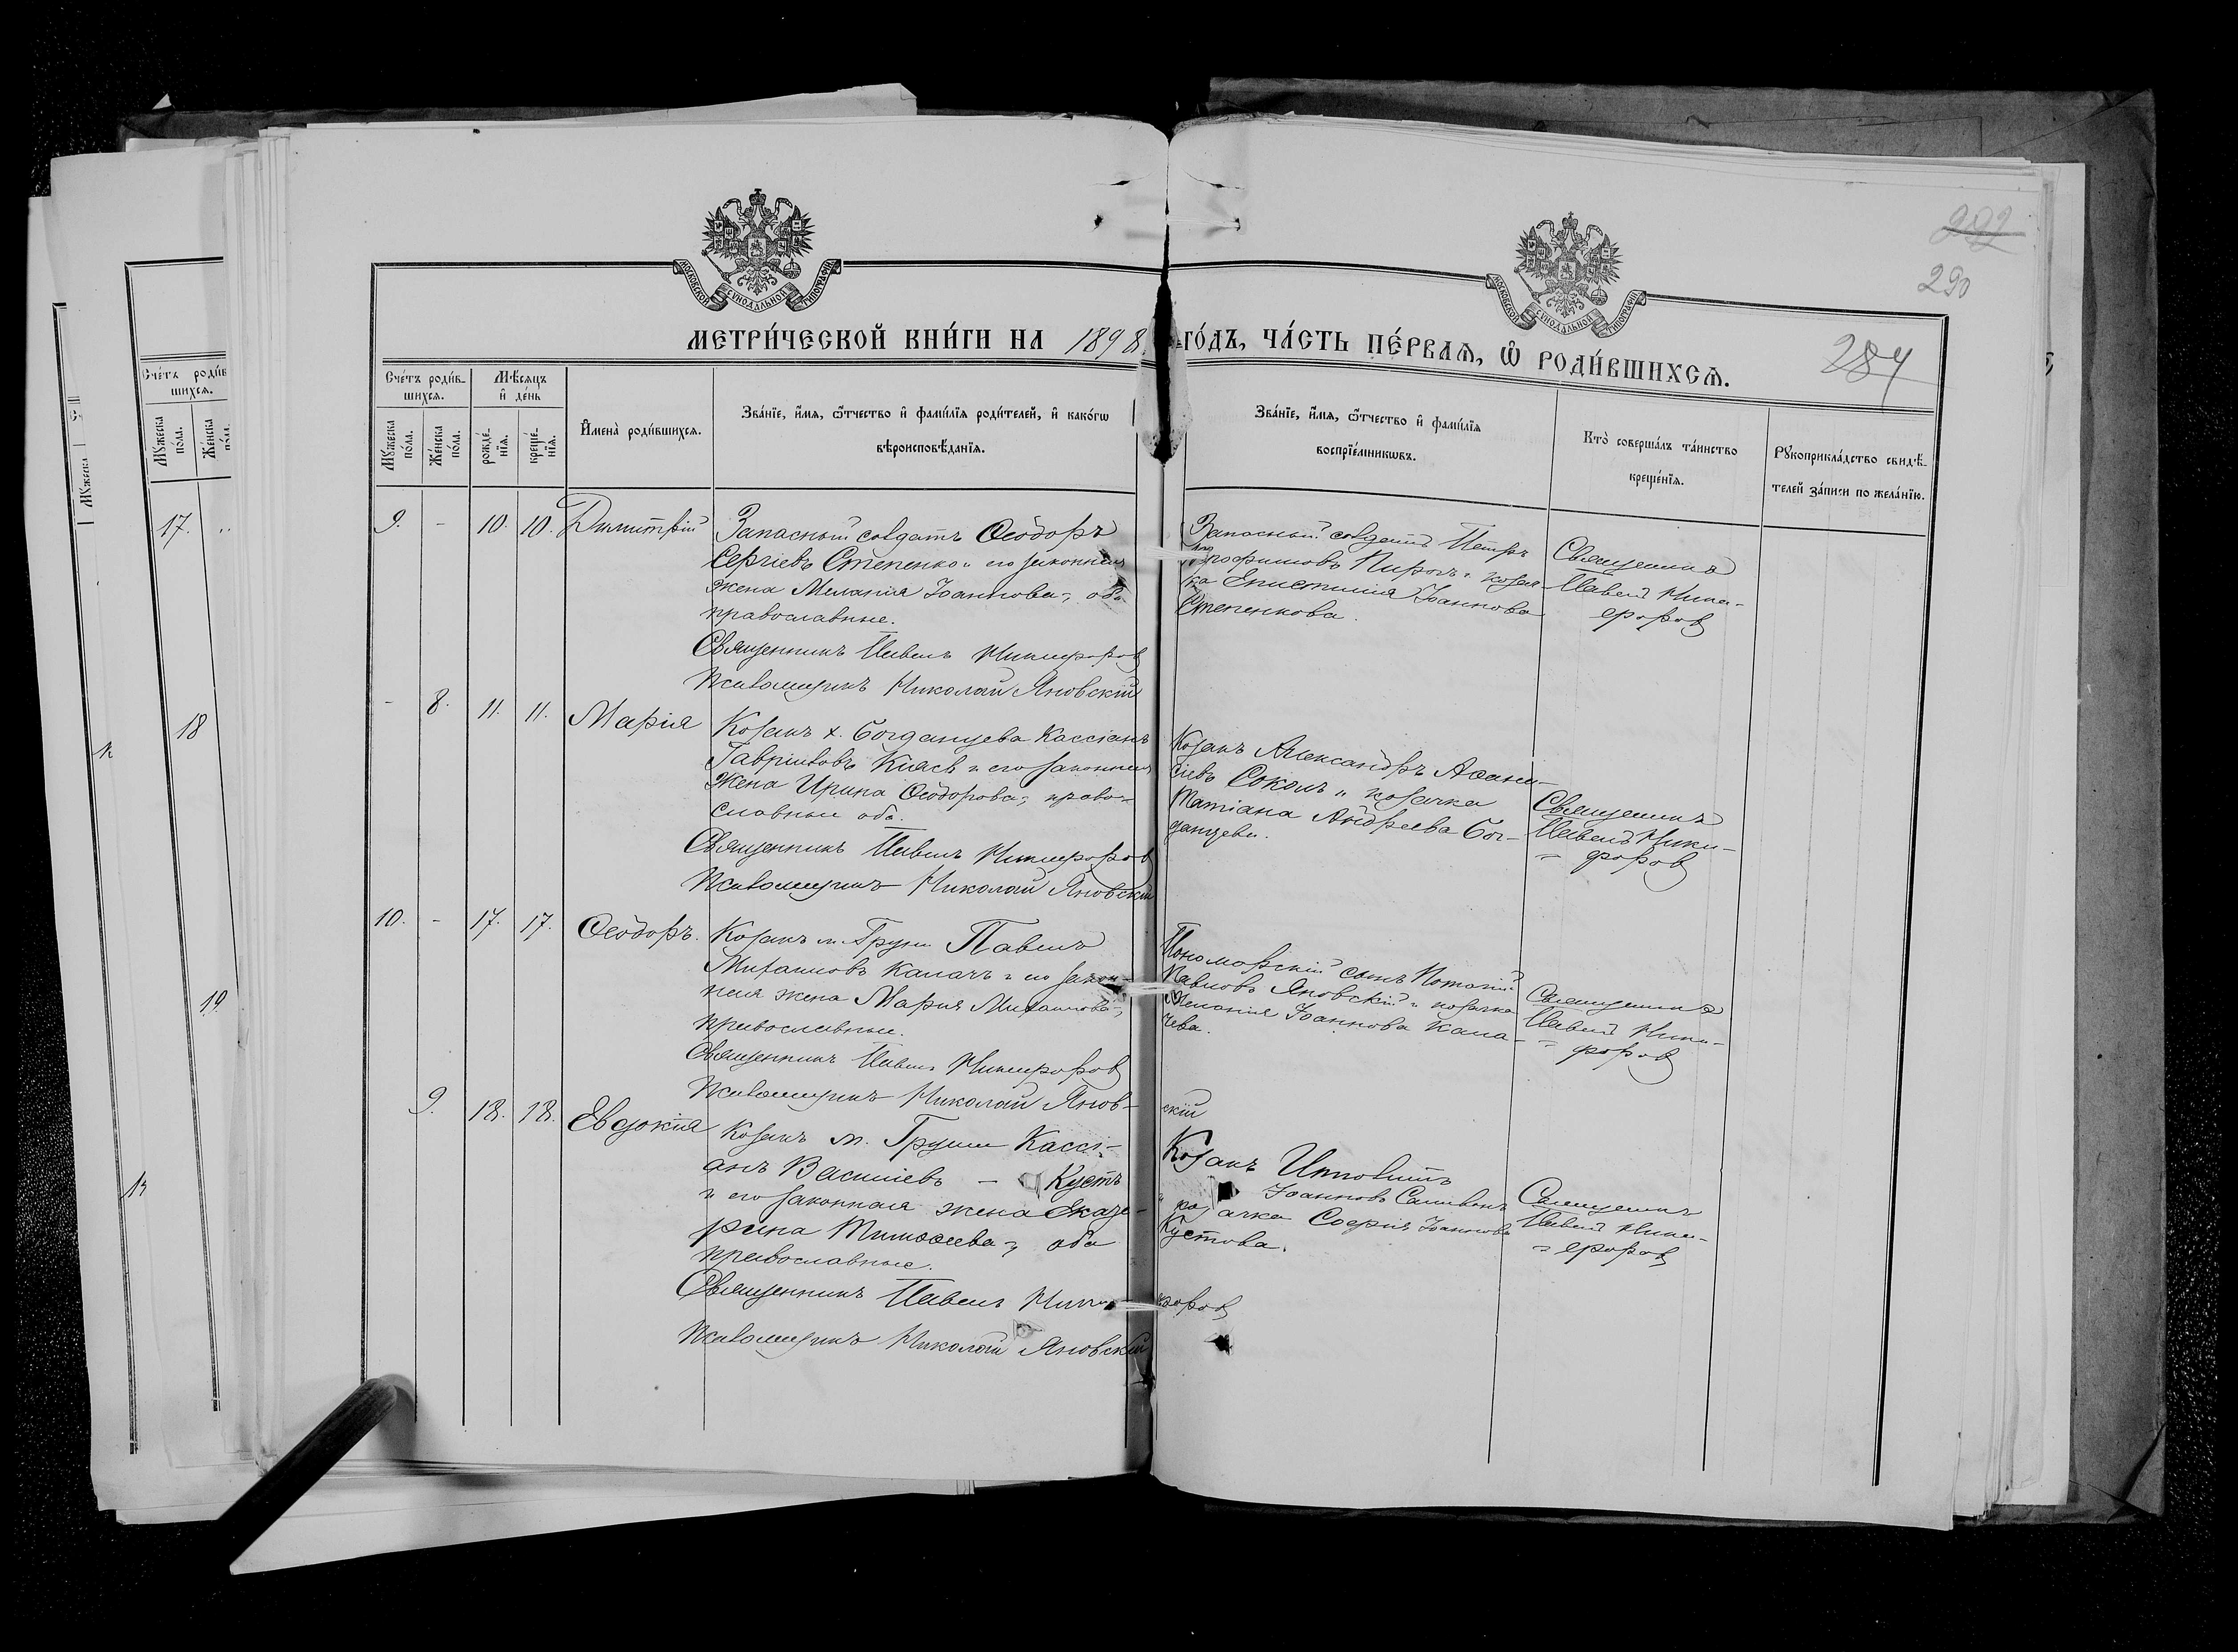 292
290
284
МОСКОВСКОЙ СѴНОДАЛЬНОЙ ТИПОГРАФІИ
МОСКОВСКОЙ СѴНОДАЛЬНОЙ ТИПОГРАФІИ
МЕТРИ́ЧЕСКОЙ КНИ́ГИ НА 1898 ГО́ДЪ, ЧА́СТЬ ПЕ́РВАѦ, Ѽ РОДИ́ВШИХСѦ.
Сче́тъ роди́в-
шихсѧ.
Мѣ́сѧцъ
и҆ де́нь
Мꙋжеска
по́ла.
Же́нска
по́ла.
рожде́-
нїѧ.
креще́-
нїѧ.
И҆мена̀ роди́вшихсѧ.
Зва́нїе, и҆́мѧ, ѻ҆́тчество и҆ фами́лїѧ роди́телей, и҆ како́гѡ
вѣроисповѣ́данїѧ.
Зва́нїе, и҆́мѧ, ѻ҆́тчество и҆ фами́лїѧ
воспрїе́мникѡвъ.
Кто̀ соверша́лъ та́инство
креще́нїѧ.
Рꙋкоприкла́дство свидѣ́-
телей за́писи по жела́нїю.
9. - 10. 10. Димитрій
Запасный солдатъ Ѳеодоръ
Сергіевъ Степенко и его законная
жена Меланія Іоаннова, оба
православные.
Священникъ Павелъ Никифоровъ
Псаломщикъ Николай Яновскій
Запасный солдатъ Петръ
Трофимовъ Пирогъ и козач-
ка Епистимія Іоаннова
Степенкова.
Священникъ
Павелъ Ники-
форовъ
- 8. 11. 11. Марія
Козакъ х. Богданцева Кассіанъ
Гавріиловъ Кіясь и его законная
жена Ирина Ѳеодорова, право-
славные оба.
Священникъ Павелъ Никифоровъ
Псаломщикъ Николай Яновскій
Козакъ Александръ Аѳана-
сіевъ Соколъ и козачка
Татіана Андреева Бог-
данцева.
Священникъ
Павелъ Ники-
форовъ
10. - 17. 17. Ѳеодоръ.
Козакъ м. Груни Павелъ
Михаиловъ Калачъ и его закон-
ная жена Марія Михаилова,
православные.
Священникъ Павелъ Никифоровъ
Псаломщикъ Николай Янов-
скій
Пономорскій сынъ Потапій
Павловъ Яновскій и козачка
Меланія Іоаннова Кала-
чева.
Священникъ
Павелъ Ники-
форовъ
9. 18. 18. Евдокія
Козакъ м. Груни Кассі-
анъ Василіевъ - Кустъ
и его законная жена Екате-
рина Тимоѳеева, оба
православные.
Священникъ Павелъ Никифоровъ
Псаломщикъ Николай Яновскій
Козакъ Ипполитъ
Іоанновъ
и козачка Софія Іоаннова
Кустова.
Священникъ
Павелъ Ники-
форовъ
Сче́тъ роди́в
шихсѧ.
Мꙋжеска
по́ла.
Же́нска
по́ла.
Мꙋжеска
17.
18
19